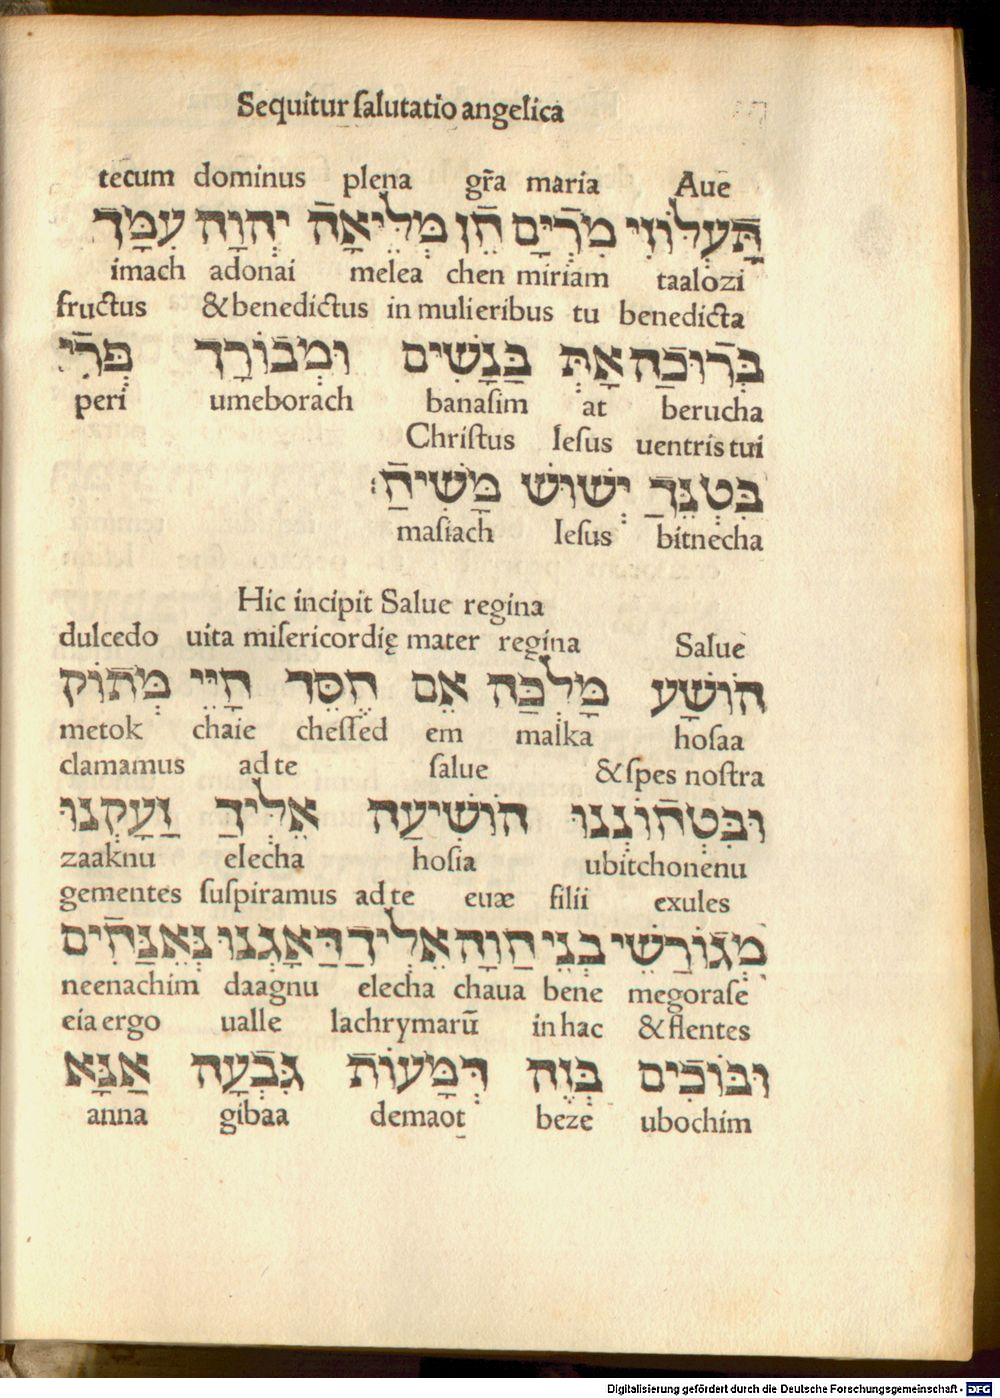 Sequitur salutatio angelica
tecum dominus plena gr̄a maria Aue
תַּעְלוֹזִי מִרְיָם חֵן מְלֵיאָה יְהוָה עִמָּךְ
imach adonai melea chen miriam taalozi
fructus & benedictus in mulieribus tu benedicta
בְּרוּכַה אַתְּ בַּנָשִׁים וּמְבוֹרָך פְּרִי
peri umeborach banasim at berucha
Christus Iesus uentris tui
בִּטְנֵךַ יְשׁוּשׁ מָּשִׁיחַ:
masiach Iesus bitnecha
Hic incipit Salue regina
dulcedo uita misericordię mater regina Salue
הוֹשָׁע מָלְכַּה אֵם חֶסֵּד חָיֵּי מְּתוֹק
metok chaie chessed em malka hosaa
clamamus ad te salue & spes nostra
וּבִּטְחוֹנֵנוּ הוֹשִׁיעַה אֵלֶיךַ זָעַקְנוּ
zaaknu elecha hosia ubitchonenu
gementes suspiramus ad te euæ filii exules
מְגוֹרַשֵׁי בְּנֵי חַוָה אֵלֶיךַ דַּאָגְנוּ נְאֵנַּחִים
neenachim daagnu elecha chaua bene megorase
eia ergo ualle lachrymarū in hac & flentes
וּבּוֹכִים בְּזֶה דְּמָּעוֹת גִּבְעָה אַנָּא
anna gibaa demaot beze ubochim
Digitalisierung gefördert durch die Deutsche Forschungsgemeinschaft - DFG